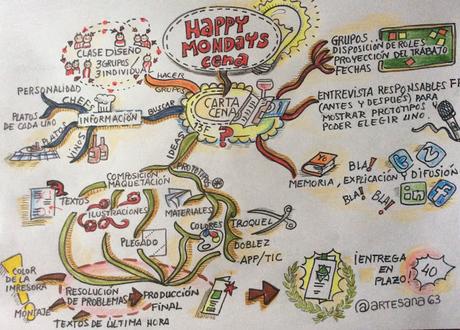 HAPPY
MONDAYS
cena
CLASE DISEÑO
3 GRUPOS/
3 INDIVIDUAL
HACER
GRUPOS
PERSONALIDAD
CHEFS
PLATOS
DE CADA UNO
PLATOS
VINOS
INFORMACIÓN
BUSCAR
CARTA
CENA
?
GRUPOS..
DISPOSICIÓN DE ROLES
PROYECCIÓN DEL TRABAJO
FECHAS
ENTREVISTA RESPONSABLES
(ANTES Y DESPUÉS) PARA
MOSTRAR PROTOTIPOS
PODER ELEGIR UNO.
Yo
MEMORIA, EXPLICACIÓN Y DIFUSIÓN
BLA!
BLA!
BLA!
in
f
IDEAS
PROTOTIPOS
COMPOSICIÓN
MAQUETACIÓN
TEXTOS
ILUSTRACIONES
MATERIALES
PLEGADO
COLORES
TROQUEL
DOBLEZ
APP/TIC
COLOR DE
LA IMPRESORA
MONTAJE
RESOLUCIÓN
DE PROBLEMAS
PRODUCCIÓN
FINAL
TEXTOS DE ÚLTIMA HORA
¡ENTREGA
EN
PLAZO
40
@artesana63